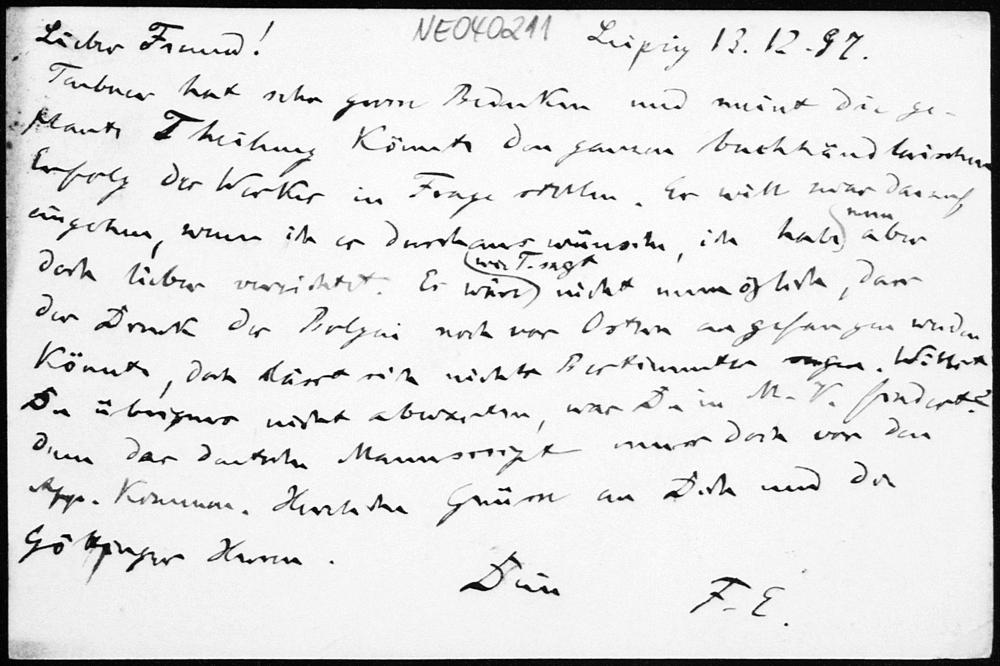 NE040211
Lieber Freund! Leipzig 13.12.97.
Teubner hat sehr grosse Bedenken und meint die ge-
plante Theilung könnte den ganzen buchhändlerischen
Erfolg des Werkes in Frage stellen. Er will zwar darauf
eingehen, wenn ich es durchaus wünsche, ich habe nun aber
doch lieber verzichtet. Es wäre (wie T. sagt) nicht unmöglich, dass
der Druck der Bolyai noch vor Ostern angefangen werden
könnte, doch lässt sich nichts Bestimmtes sagen. Willst
Du übrigens nicht abwarten, was Du in M.-V. findest?
denn das deutsche Manuscript muss doch vor den
App. kommen. Herzliche Grüsse an Dich und die
Göttinger Herren.
Dein
F. E.